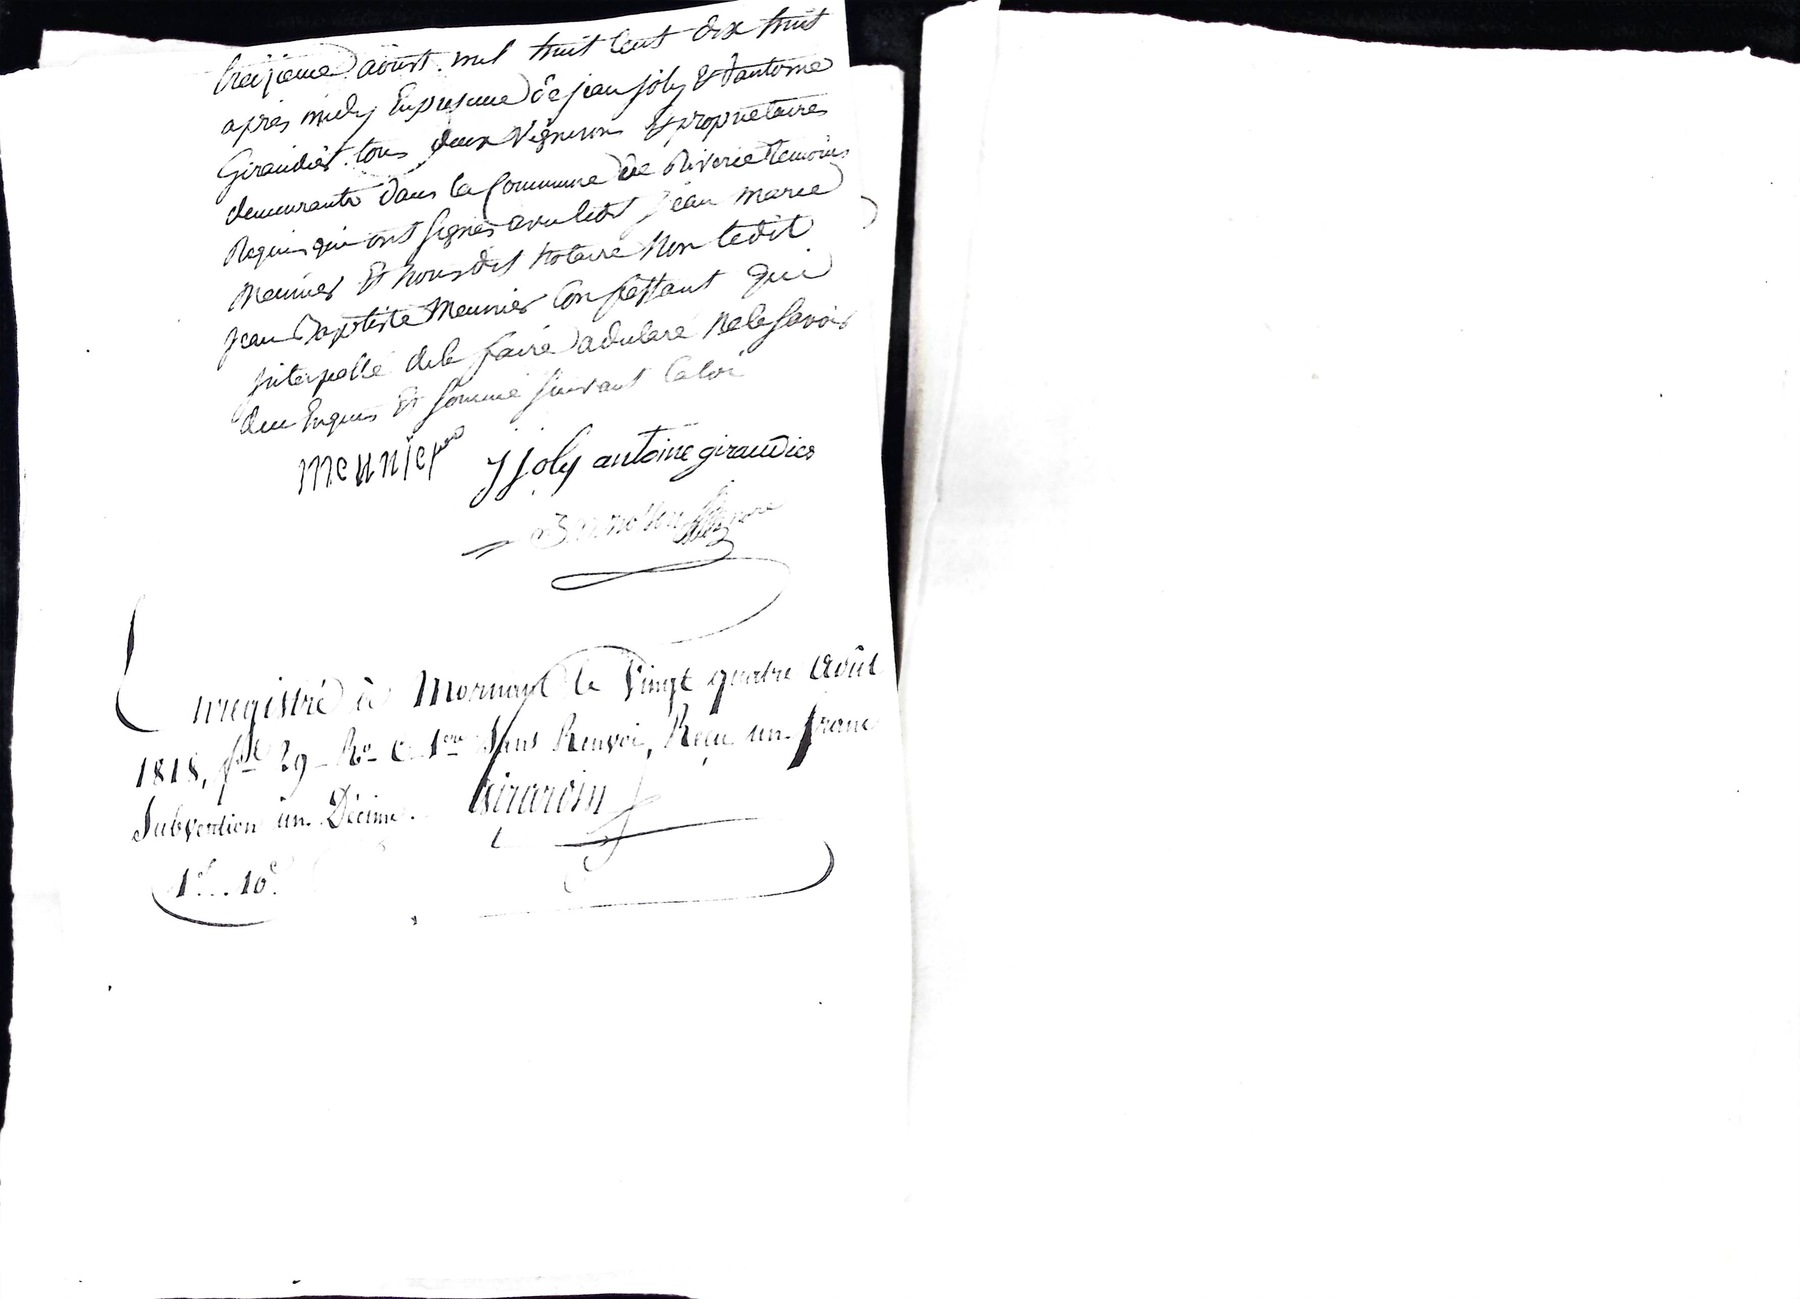 treizieme aoust mil huit cent dix huit
après midy En presence de jean joly & d'antoine
Giraudier tous deux vignerons & proprietaires
demeurants dans la commune de Riverie temoins
Requis qui ont signés avec ledit jean marie
Meunier Et nous dit notaire Non ledit
jean Baptiste Meunier Confessant qui
interpellé de le faire a declaré ne le savoir
deu Enquis Et sommé suivant la loi
Meunier
J joly antoine giraudier
Enregistré à Mornant le Vingt quatre Août
1818, fol 29 Ro C. 1ere Sans Renvoi, Reçu un franc
Subvention un Décime. Girardin
1f. 10c.